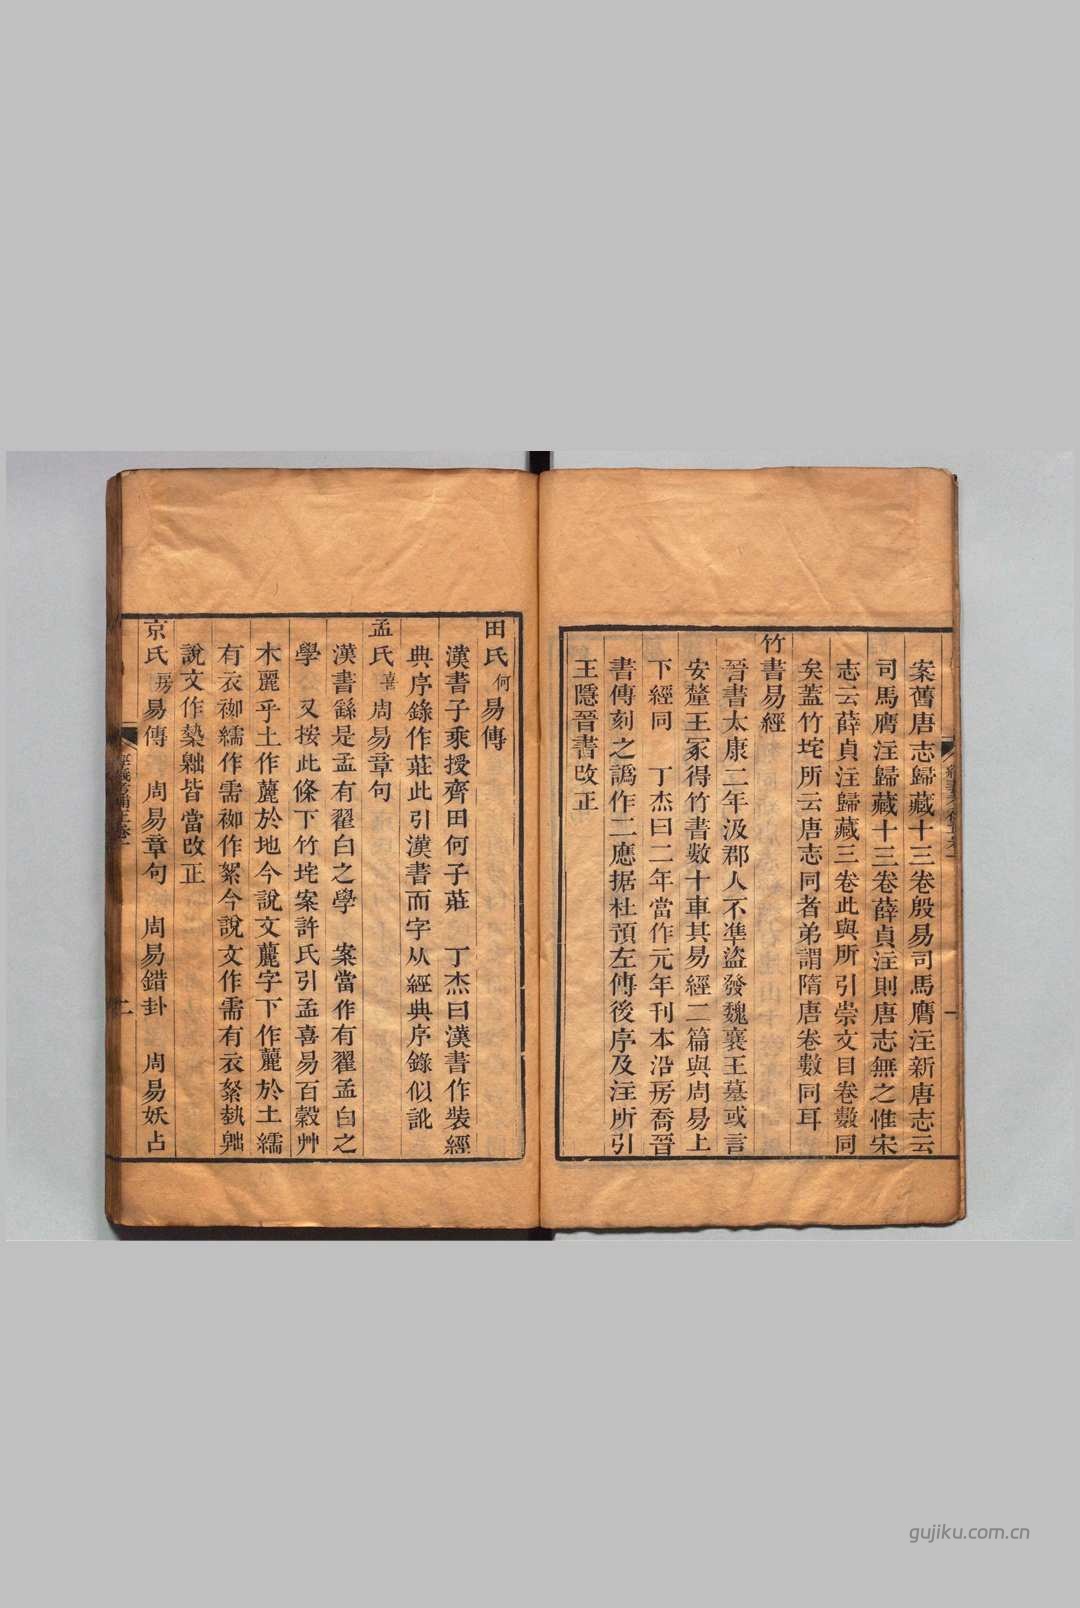 案舊唐志歸藏十三卷殷易司馬膺注新唐志云
司馬膺注歸藏十三卷薛貞注則唐志無之惟宋
志云薛貞注歸藏三卷此與所引崇文目卷數同
矣蓋竹垞所云唐志同者弟謂隋唐卷數同耳
竹書易經
晉書太康二年汲郡人不準盜發魏襄王墓或言
安釐王冢得竹書數十車其易經二篇與周易上
下經同　丁杰曰二年當作元年刊本沿房喬晉
書傳刻之譌作二應据杜預左傳後序及注所引
王隱晉書改正
田氏何易傳
漢書子乘授齊田何子莊　丁杰曰漢書作裝經
典序錄作莊此引漢書而字从經典序錄似訛
孟氏喜周易章句
漢書繇是孟有翟白之學　案當作有翟孟白之
學　又按此條下竹垞案許氏引孟喜易百穀艸
木麗乎土作䕻於地今說文䕻字下作䕻於土繻
有衣袽繻作需袽作絮今說文作需有衣絮埶䵳
說文作槷𪓷皆當改正
京氏房易傳　周易章句　周易錯卦　周易妖占
經義考補正卷一
二
gujiku.com.cn